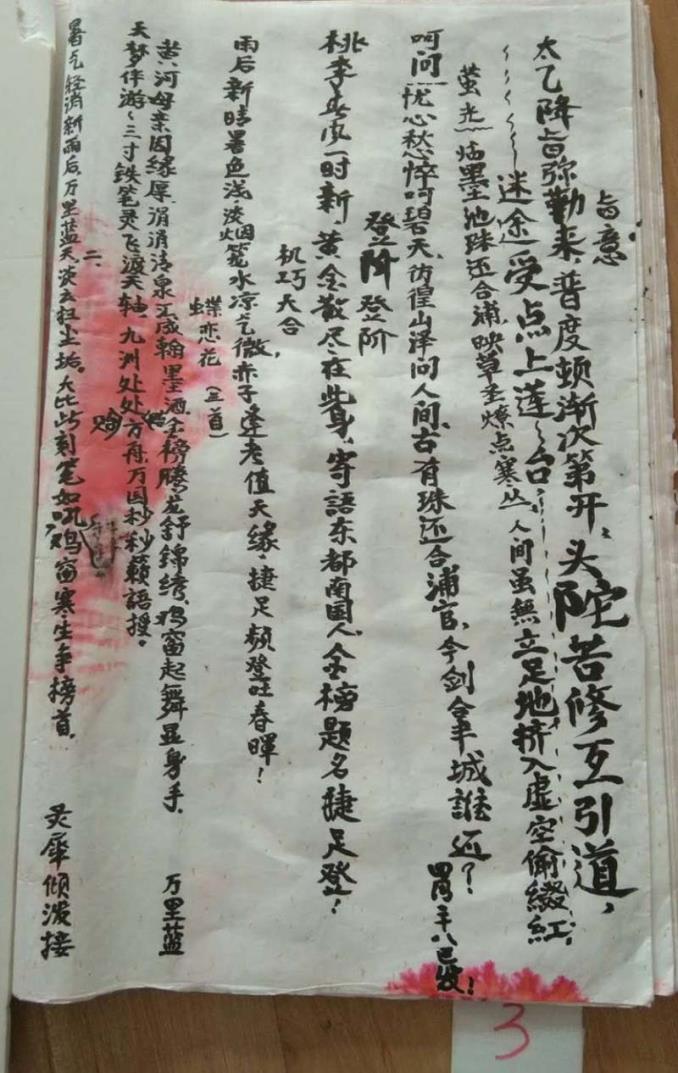 旨意
太乙降旨弥勒来、普度顿渐次第开、头陀苦修互引道，
迷途受点上莲台，
萤光 墨池珠还合浦映草圣燎点寒丛、人间虽無立足地、挤入虚空偷缀红，
呵问 忧心愁悴呵碧天、彷徨山泽问人间、古有珠还合浦官、今剑合丰城誰还？
登阶登阶
桃李春风一时新、黄金散尽在此身、寄語东都南国人、金榜题名捷足登！
机巧天合，
雨后新晴暑色浅、淡烟笼水凉气微、赤子逢老值天缘、捷足頻登吐春暉！
蝶恋花（三首）
黄河母亲因缘厚、涓涓清泉汇成翰墨洒、金榜腾龙舒錦绣、鸡窗起舞显身手、万里蓝
天梦伴游、三寸铁笔灵飞渡天轴、九洲处处方舟、万国秒秒籁語授。
二、
暑气轻消新雨后、万里蓝天、淡云扫尘垢。大比此刻笔如 鸡窗寒生争榜首、灵犀倾泼接
3